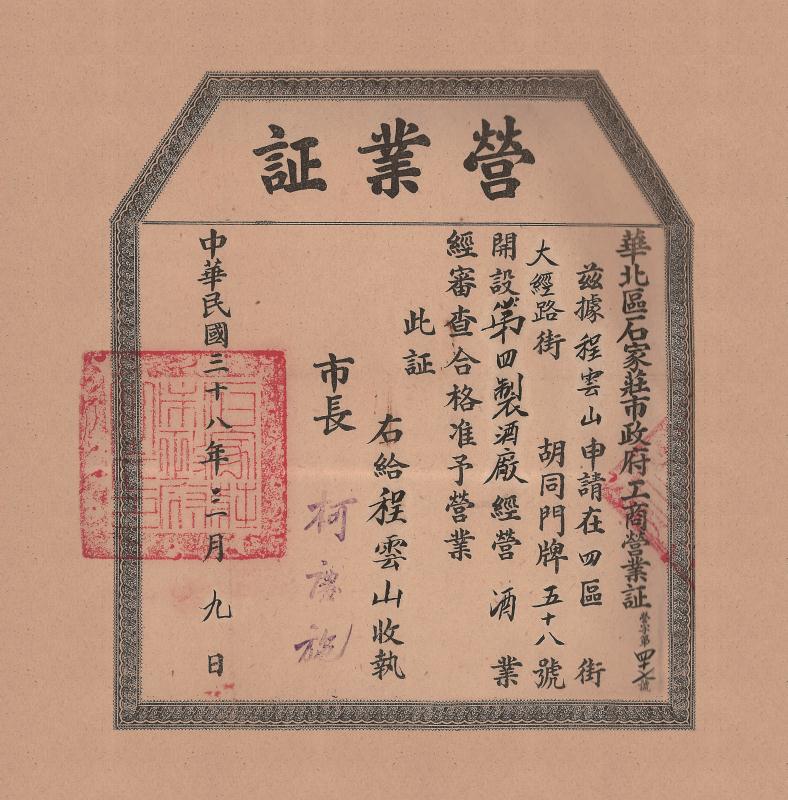 營業証
華北區石家莊市政府工商營業証 營字第四十七號
茲據程雲山申請在四區 街
大經路街 胡同門牌五十八號
開設第四製酒廠經營 酒 業
經審查合格准予營業
此証
右給程雲山收執
市長 柯慶施
中華民國三十八年三月九日